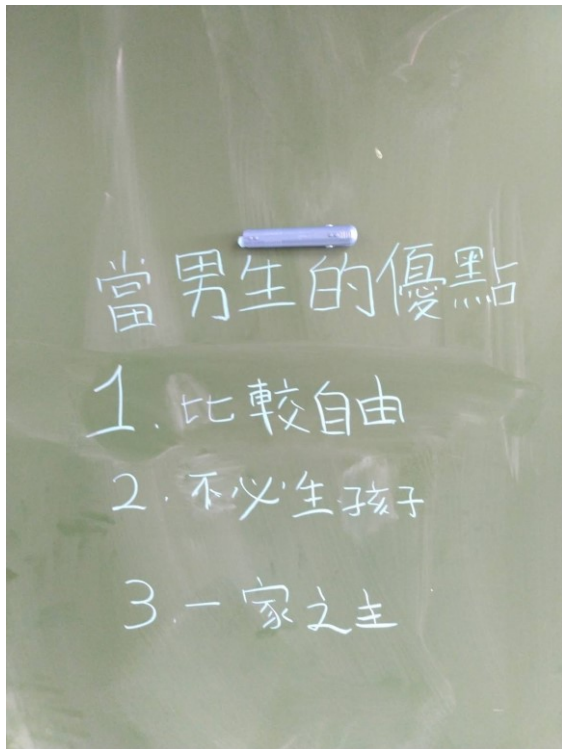 當男生的優點
1. 比較自由
2. 不必生孩子
3. 一家之主